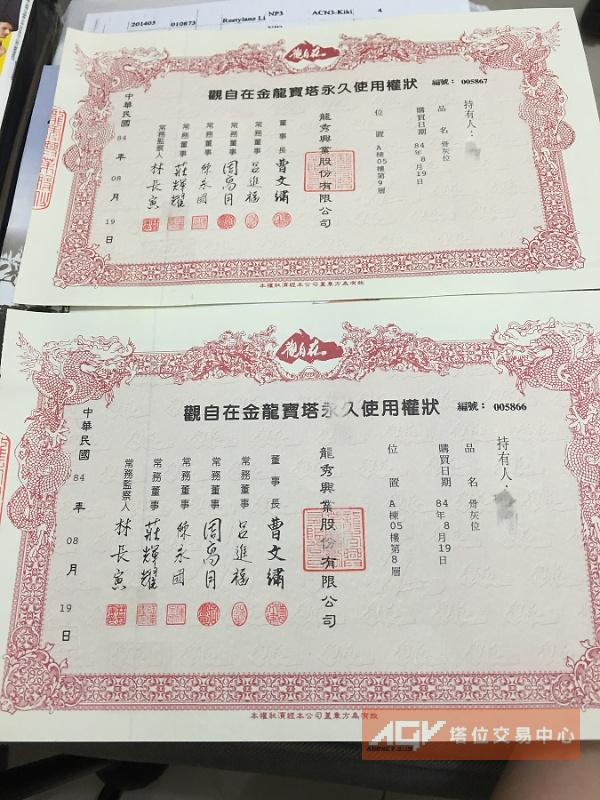 201405 010873 Restylane Li NP3 ACN3-Kiki 4
觀自在
觀自在金龍寶塔永久使用權狀 編號：005867
持有人：
品名 骨灰位
購買日期 84年8月19日
位置 A棟05樓第9層
龍秀興業股份有限公司
董事長 曹文繡
常務董事 呂進福
常務董事 周高月
常務董事 陳永國
常務董事 莊輝耀
常務監察人 林長寅
中華民國84年08月19日
本權狀須經本公司蓋東方為有效
觀自在
觀自在金龍寶塔永久使用權狀 編號：005866
持有人：
品名 骨灰位
購買日期 84年8月19日
位置 A棟05樓第8層
龍秀興業股份有限公司
董事長 曹文繡
常務董事 呂進福
常務董事 周高月
常務董事 陳永國
常務董事 莊輝耀
常務監察人 林長寅
中華民國84年08月19日
本權狀須經本公司蓋東方為有效
AGV 塔位交易中心